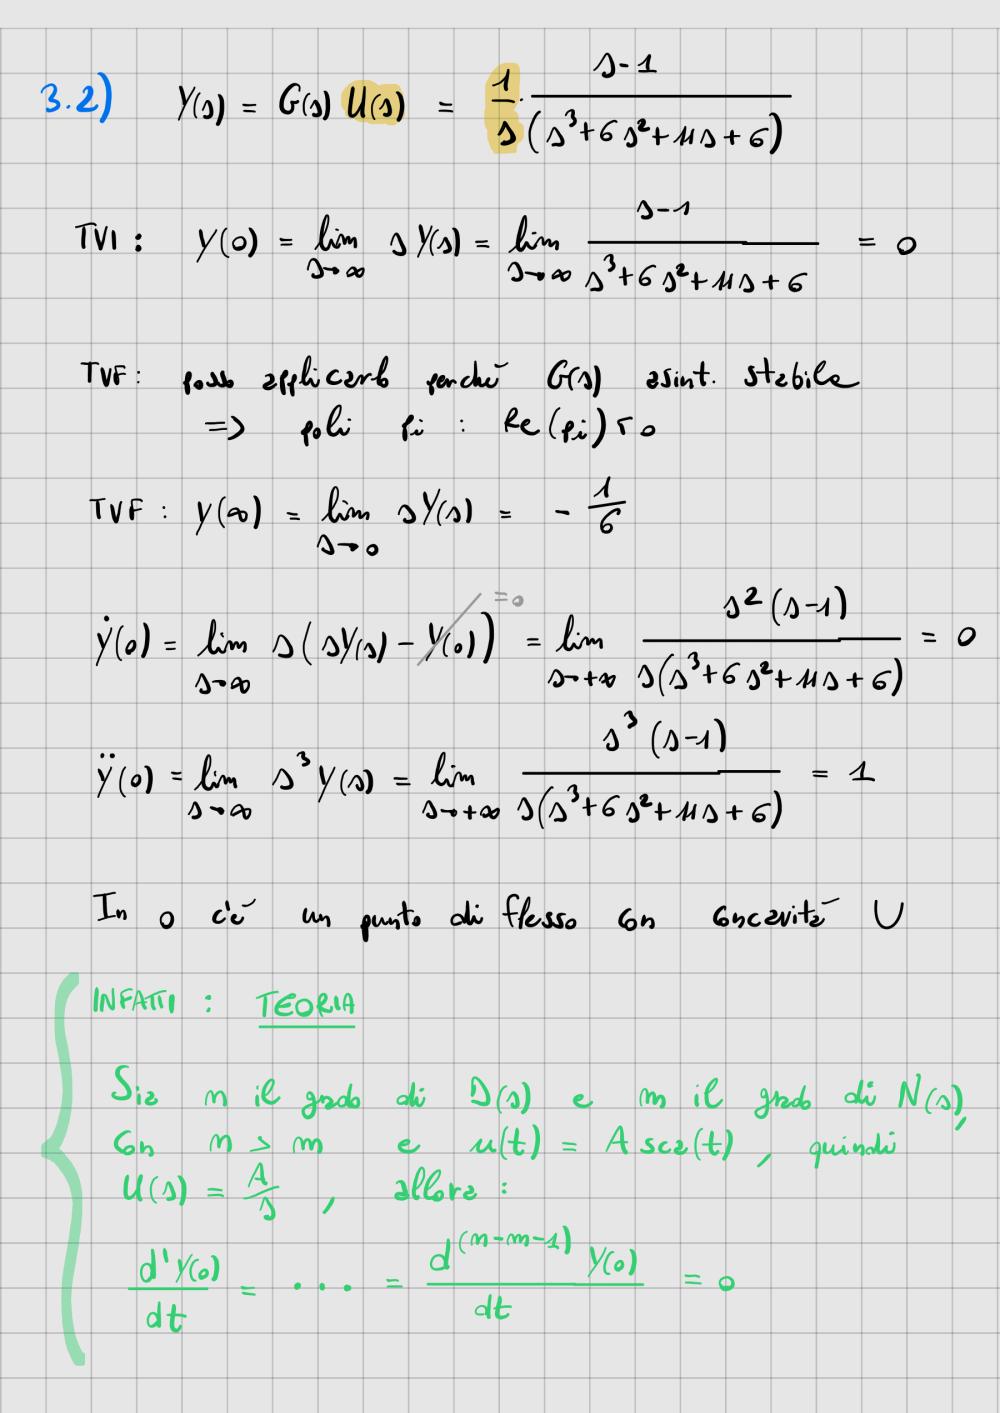 3.2) Y(s) = G(s) U(s) = 1/s · (s-1)/(s³+6s²+11s+6)
TVI : y(0) = lim s→∞ sY(s) = lim s→∞ (s-1)/(s³+6s²+11s+6) = 0
TVF : posso applicarlo perché G(s) asint. stabile
=> poli pi : Re(pi) < 0
TVF : y(∞) = lim s→0 sY(s) = - 1/6
ẏ(0) = lim s→∞ s(sY(s) - y(0)) =0 = lim s→+∞ s²(s-1)/(s(s³+6s²+11s+6)) = 0
ÿ(0) = lim s→∞ s³Y(s) = lim s→+∞ s³(s-1)/(s(s³+6s²+11s+6)) = 1
In 0 c'è un punto di flesso con concavità ∪
INFATTI : TEORIA
Sia n il grado di D(s) e m il grado di N(s),
con n > m e u(t) = A sca(t) , quindi
U(s) = A/s , allora :
d'y(0)/dt = ... = d^(n-m-1) y(0)/dt = 0